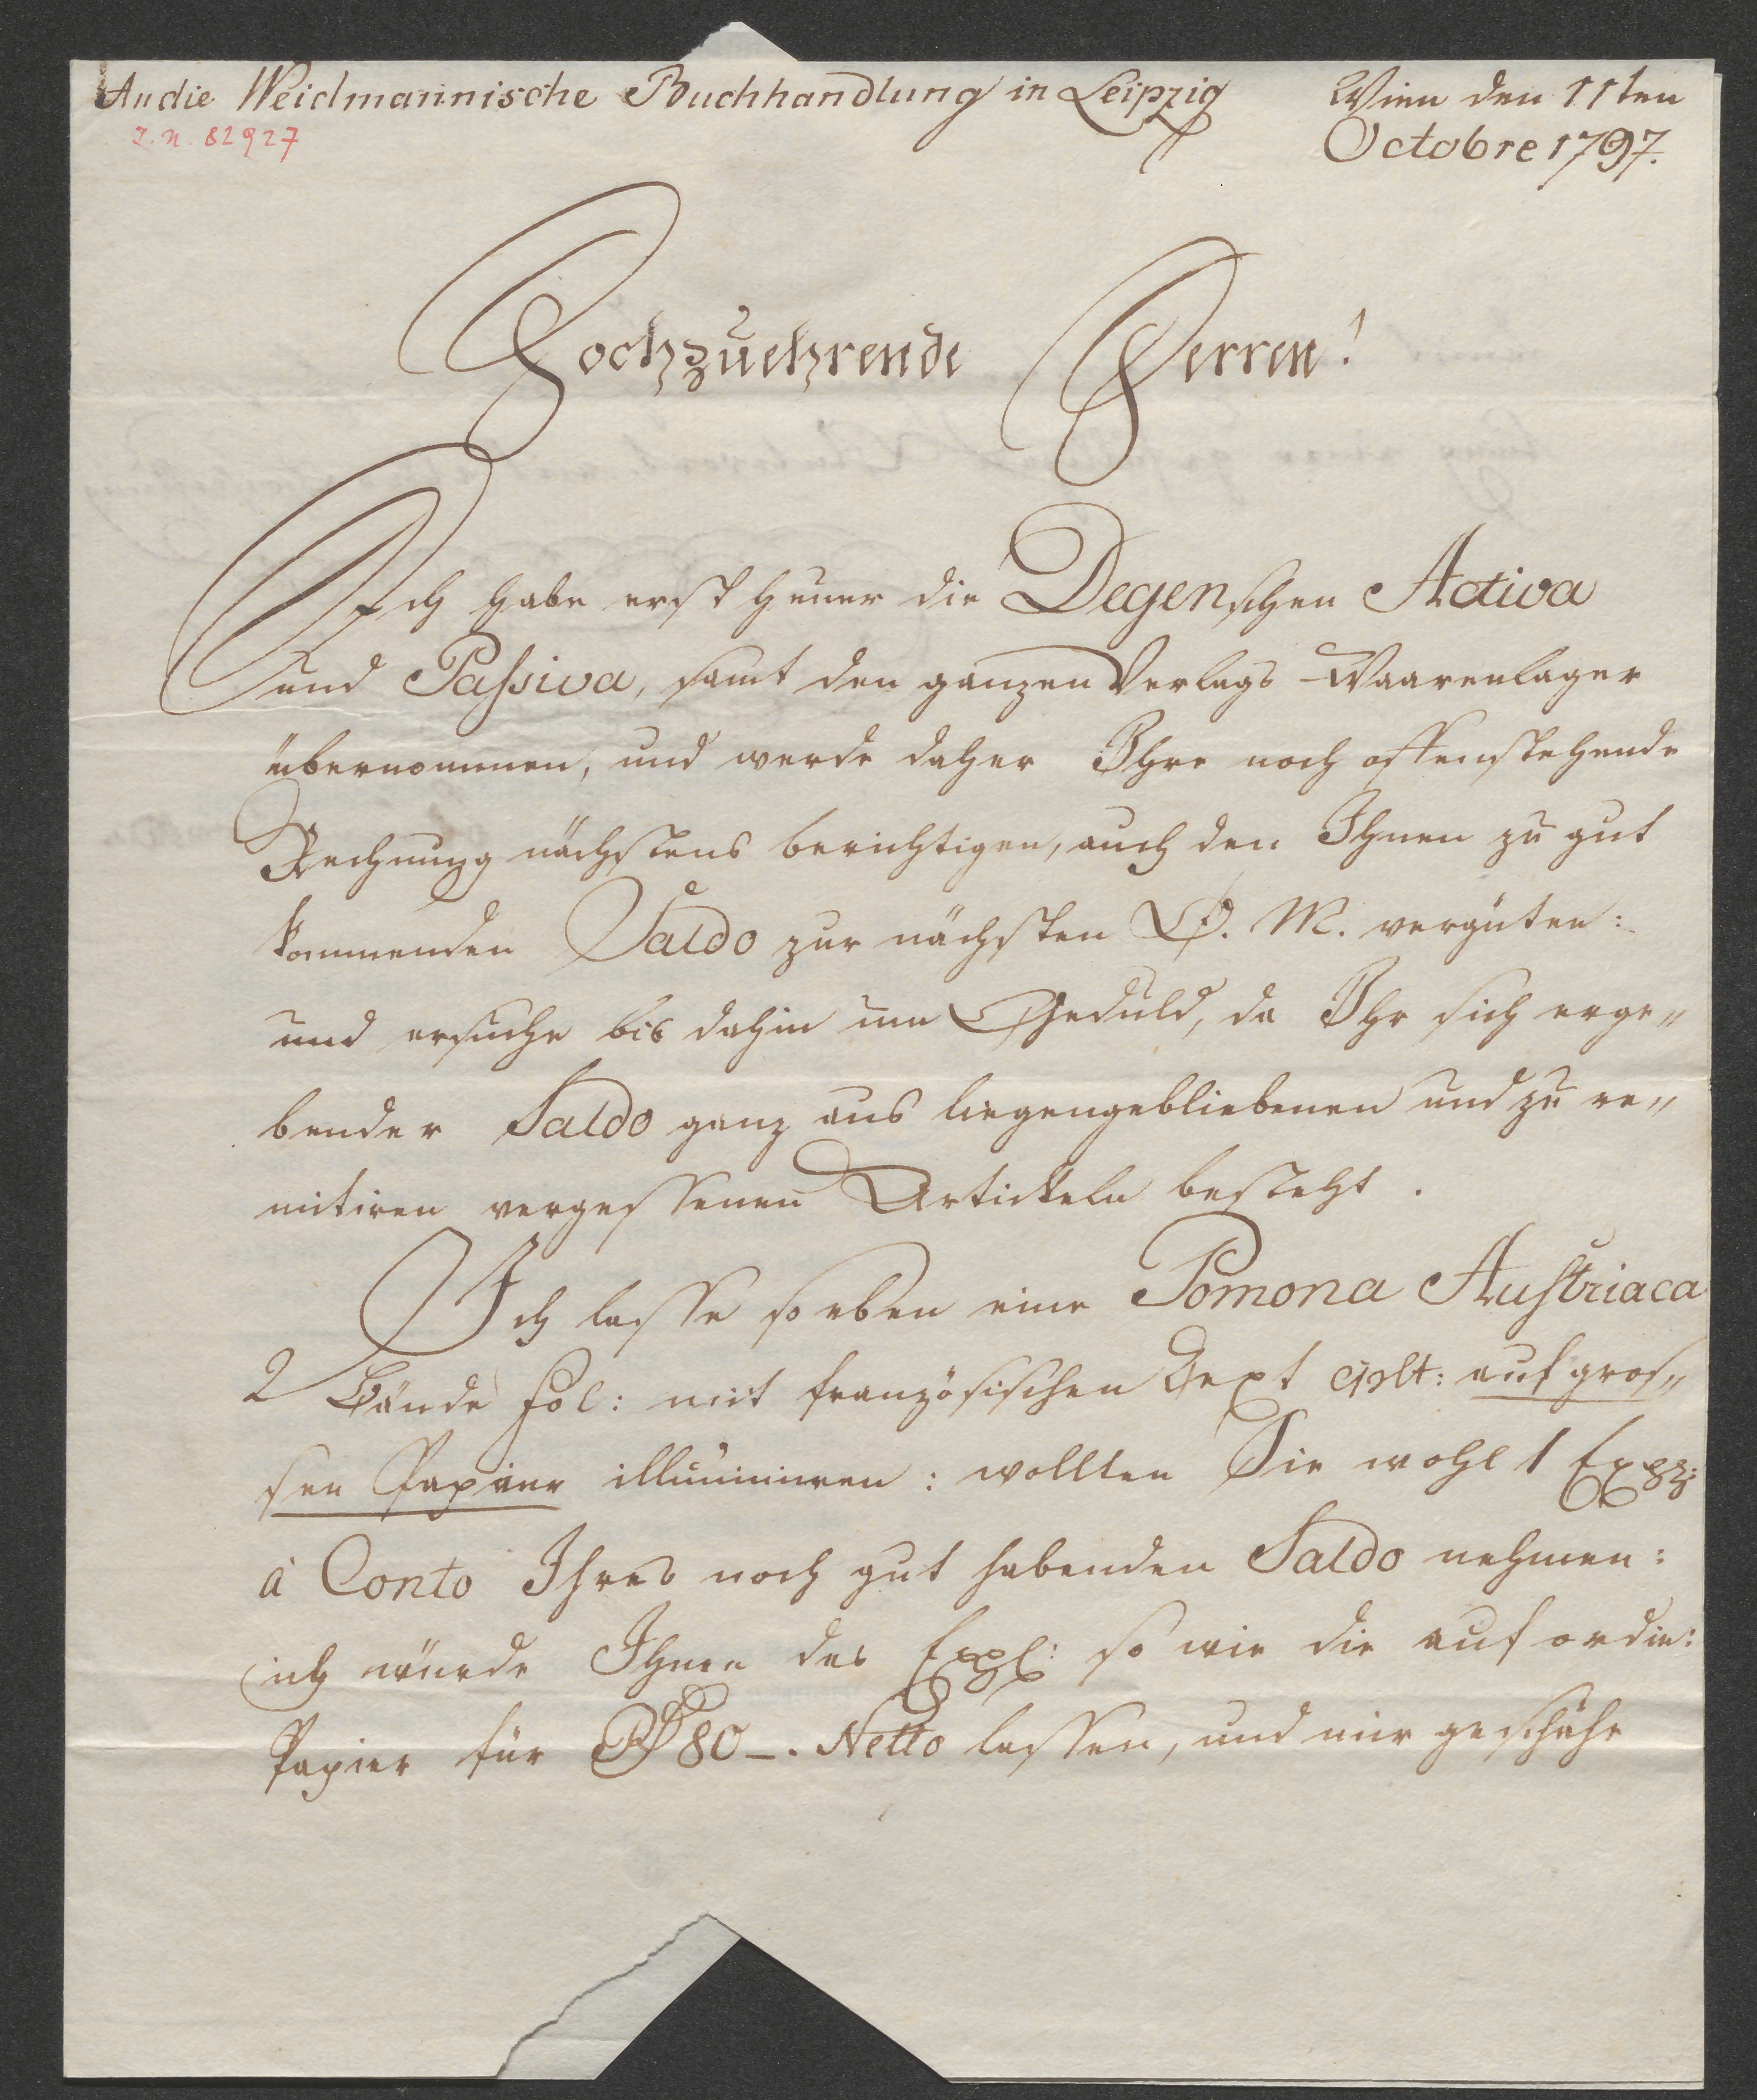 An die Weidmannische Buchhandlung in Leipzig
Wien den 11ten
Octobre 1797.
I. N. 82927
Hochzuehrende Herren!
Ich habe erst heuer die Degenschen Activa
und Passiva, samt den ganzen Verlags-Waarenlager
übernommen, und werde daher Ihre noch offenstehende
Rechnung nächstens berichtigen, auch den Ihnen zu gut
kommenden Saldo zur nächsten O. M. vergüten:
und ersuche bis dahin um Geduld, da Ihr sich erge„
bender Saldo ganz aus liegengebliebenen und zu re„
mitiren vergessenen Artickeln besteht.
Ich lasse so eben eine Pomona Austriaca
2 Bände fol: mit französischen Text auf gros„
sen Papier illuminiren: wollten Sie wohl 1 Expl:
à Conto Ihres noch gut habenden Saldo nehmen:
ich würde Ihnen das Expl: so wie die auf ordin:
Papier für 80 –. Netto lassen, und mir geschähe